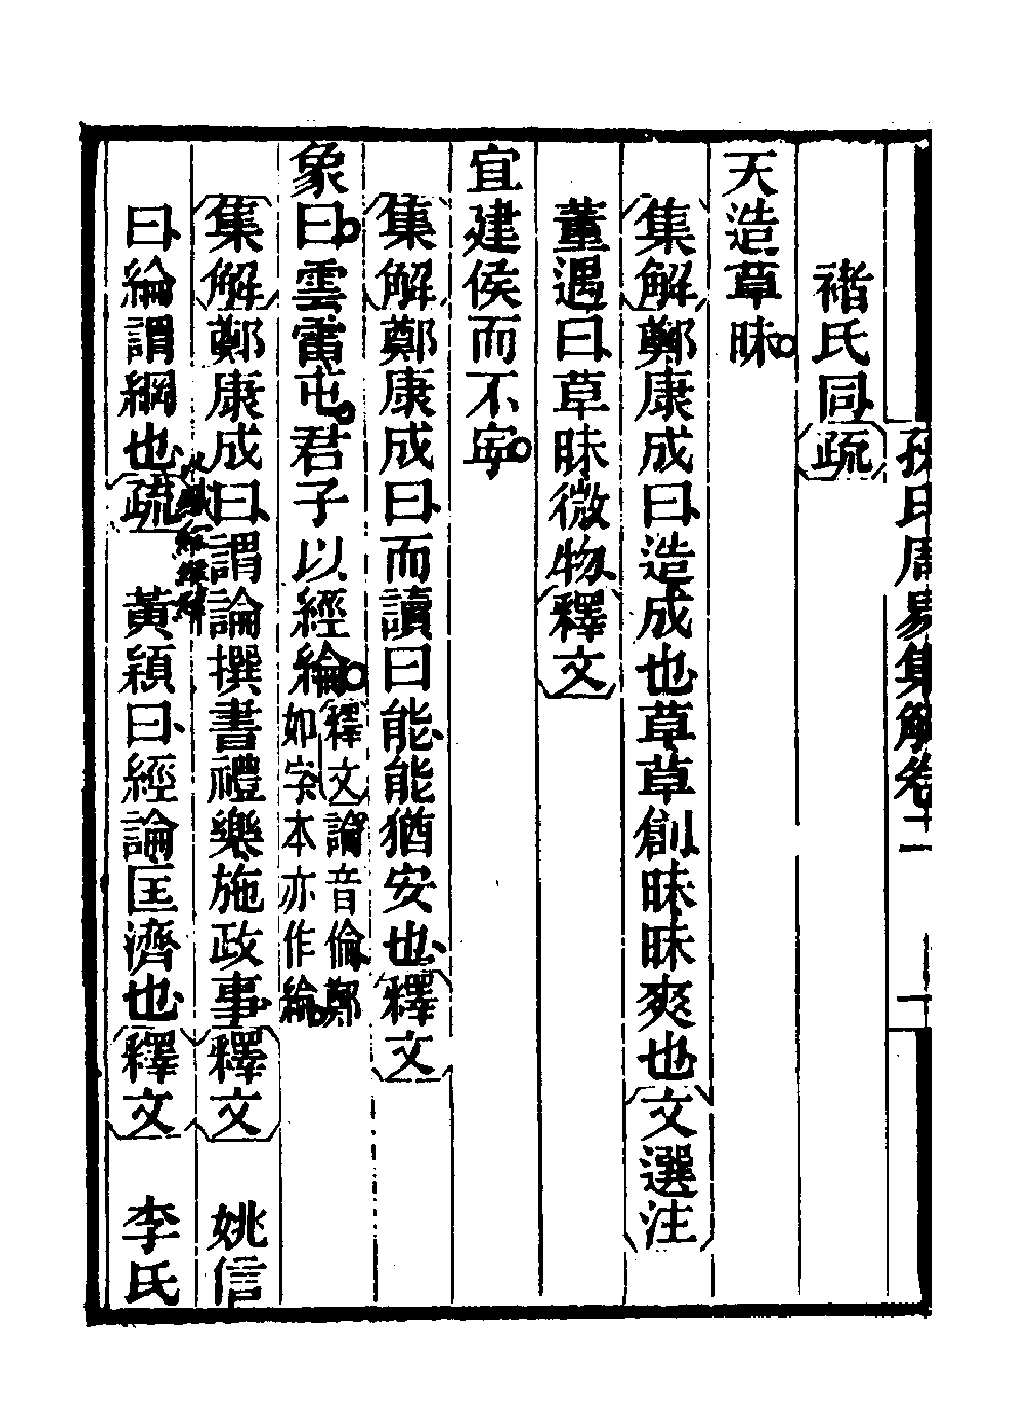 孫氏周易集解卷二 一
褚氏同疏
天造草昧
集解鄭康成曰造成也草草創昧昧爽也文選注
董遇曰草昧微物釋文
宜建侯而不寧
集解鄭康成曰而讀曰能能猶安也釋文
象曰雲雷屯君子以經綸釋文論音倫鄭如字本亦作綸
集解鄭康成曰謂論撰書禮樂施政事釋文 姚信
曰綸謂綱也疏 黃穎曰經論匡濟也釋文 李氏